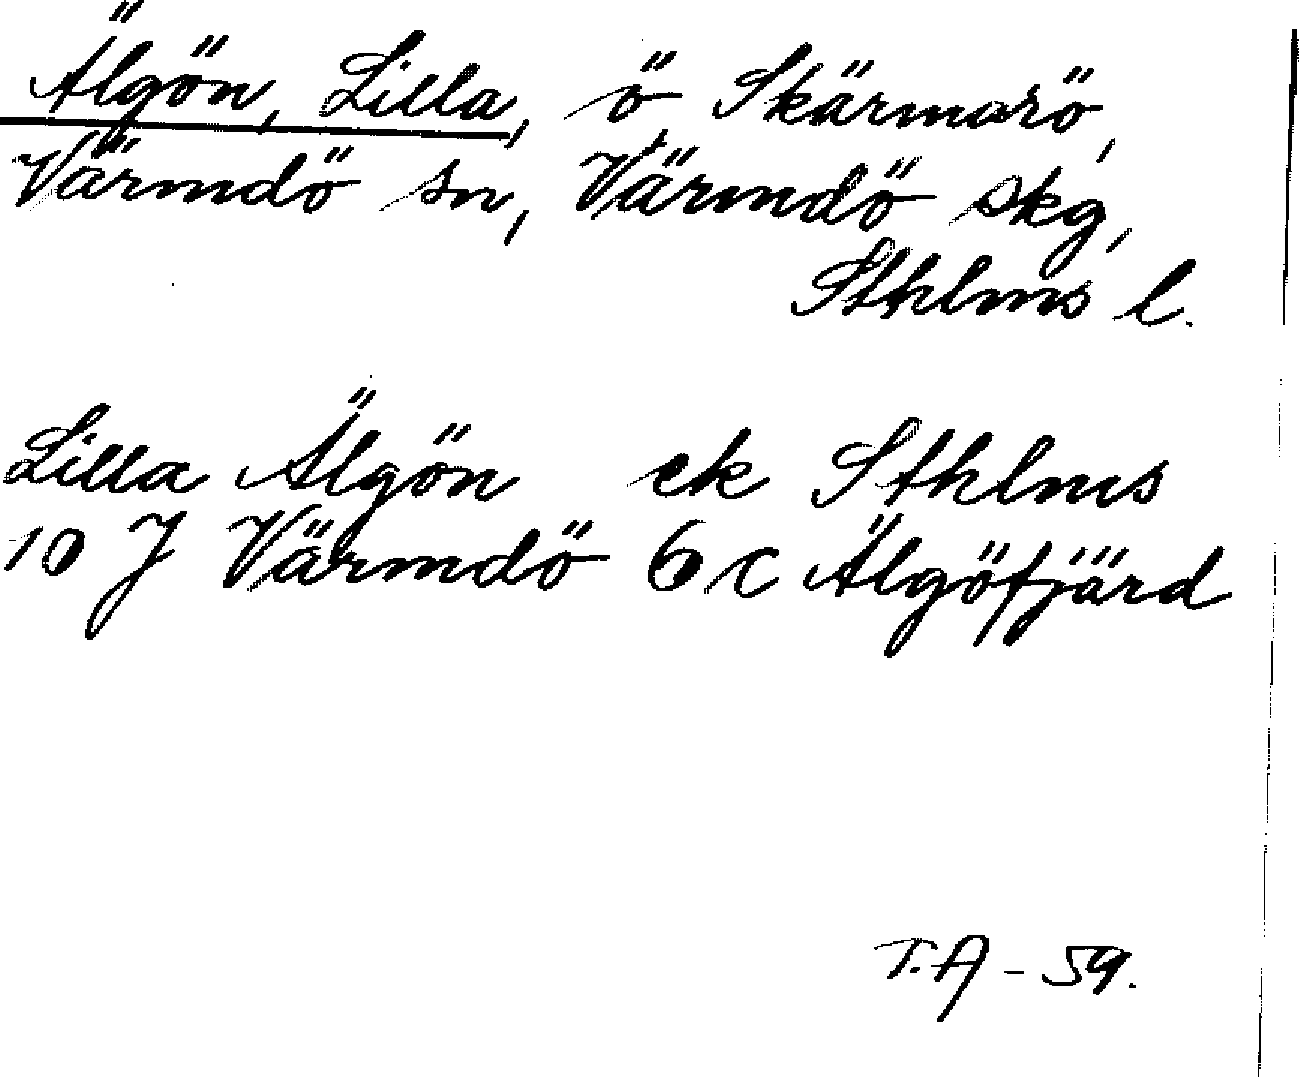 Älgön, Lilla, ö Skärmarö,
Värmdö sn, Värmdö skg,
Sthlms l.
Lilla Älgön ek Sthlms
10 J Värmdö 6 c Älgöfjärd
T.A - 59.